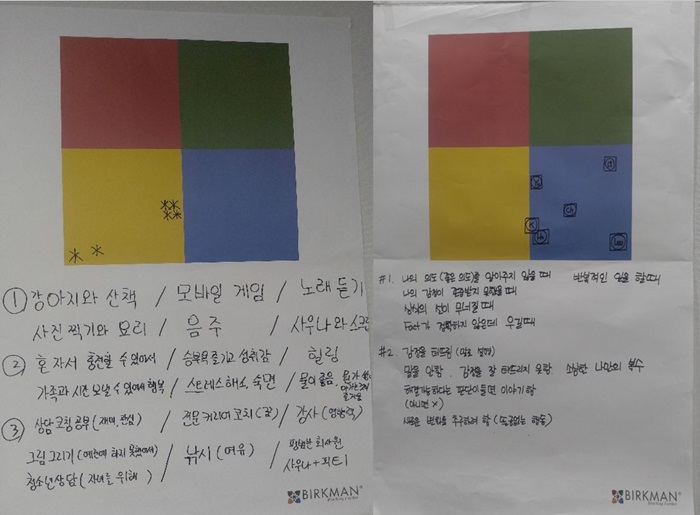 ① 강아지와 산책 / 모바일 게임 / 노래 듣기
사진 찍기와 요리 / 음주 / 사우나와 스크린
② 혼자서 충전할 수 있어서 / 승부욕 즐기고 성취감 / 힐링
가족과 시간 보낼 수 있어서 행복 / 스트레스 해소, 숙면 / 몰이 좋음
③ 상담 코칭 공부 (재미, 관심) / 전문 커리어 코치 (꿈) / 강사 (영향력)
그림 그리기 (예전에 하지 못했어서) / 낚시 (여유) / 평범한 회사원
청소년 상담 (자녀를 위해) / 사우나 +
BIRKMAN
#1. 나의 의도 (좋은 의도)를 알아주지 않을 때 반복적인 일을 할 때
나의 감정이 존중받지 못했을 때
상식의 선이 무너질 때
Fact가 정확하지 않은데 우길 때
#2 감정을 터뜨림 (말로 설명)
말을 안 함. 감정을 잘 터뜨리지 못함 소심한 나만의 복수
해결 가능하다는 판단이 들면 이야기함
(아니면 X)
새로운 변화를 추구하려 함
BIRKMAN